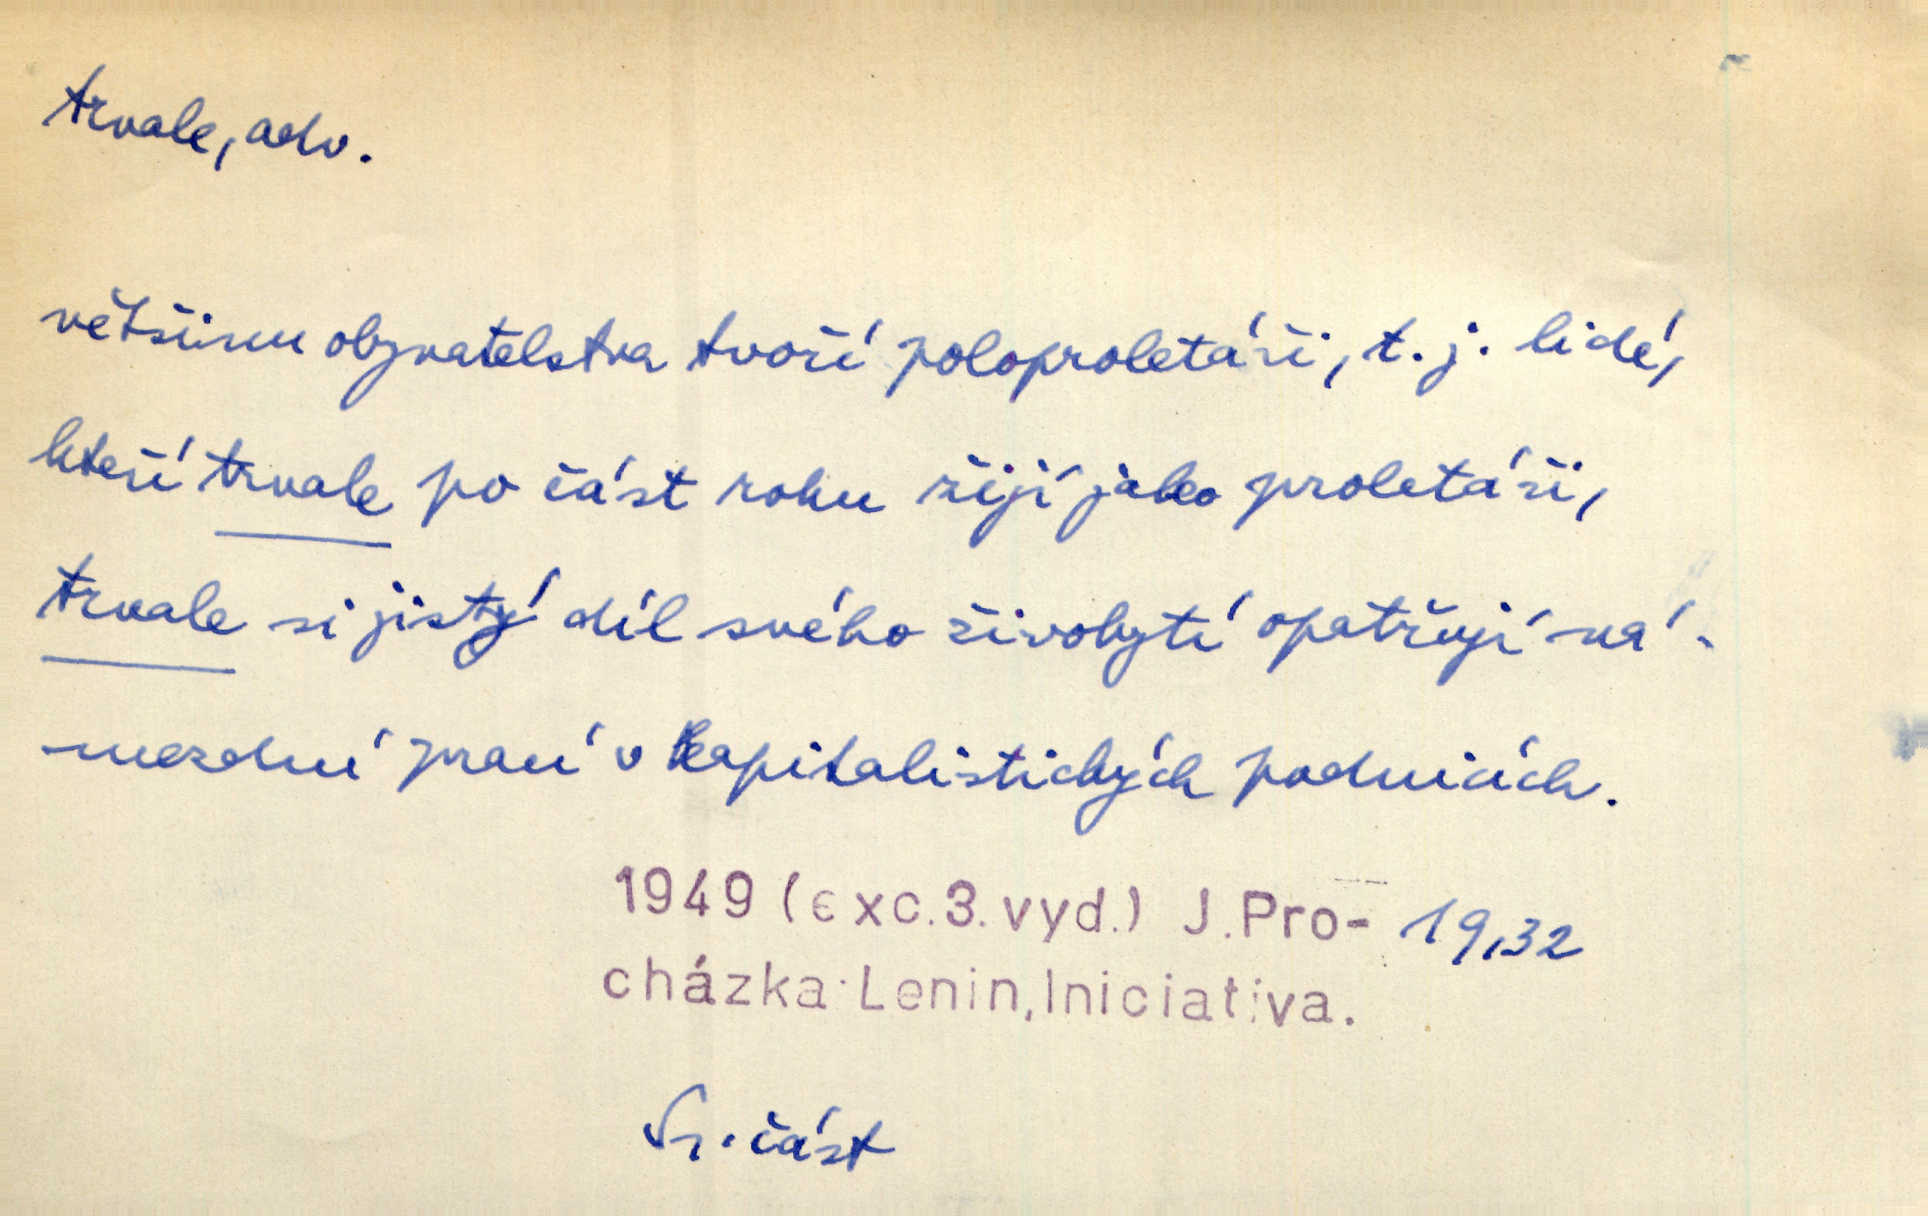 trvale, adv.
většinu obyvatelstva tvoří poloproletáři, t. j. lidé,
kteří trvale po část roku žijí jako proletáři,
trvale si jistý díl svého živobytí opatřují ná-
mezdní prací v kapitalistických podnicích.
1949 (exc. 3. vyd.) J. Pro- 19,32
cházka: Lenin, Iniciativa.
Sr. část